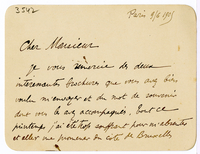 3542
Paris 9/6 1905
Cher Monsieur
Je vous remercie de deux
intéressantes brochures que vous avez bien
voulu m'envoyer et du mot de souvenir
dont vous les avez accompagnées. Tout ce
printemps j'ai été trop souffrant pour m'absenter
et aller me promener du côté de Bruxelles